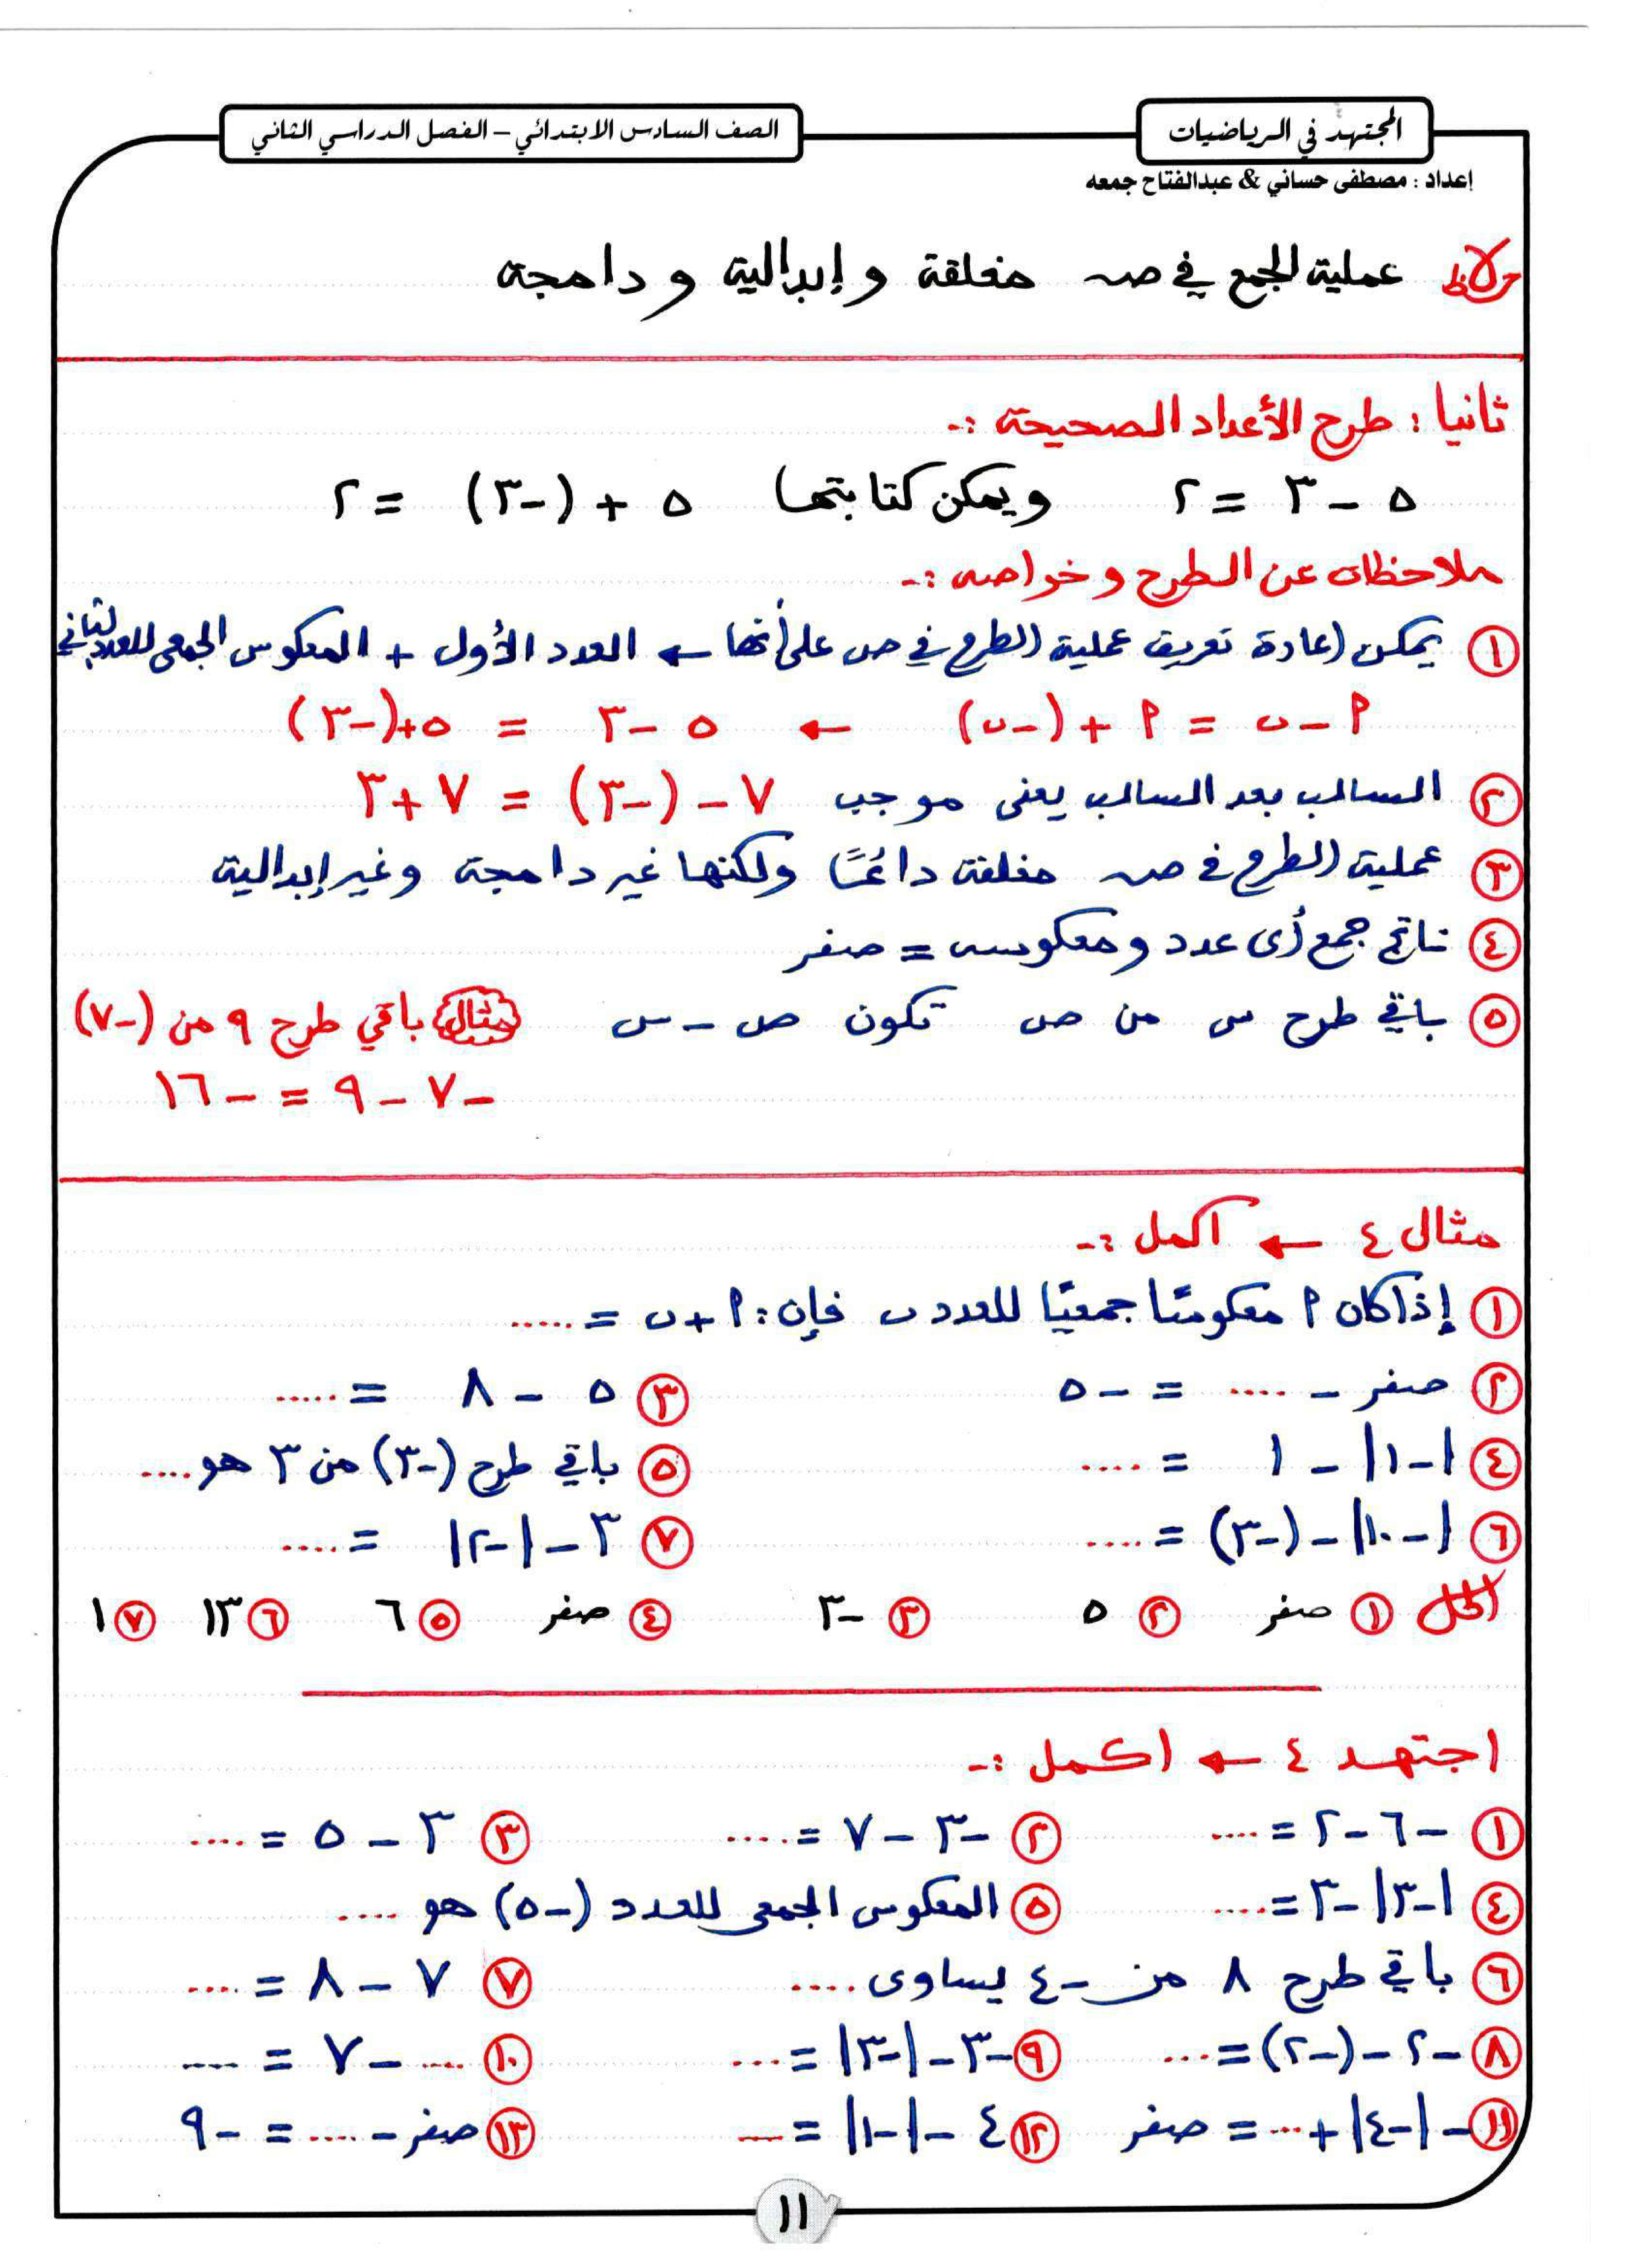 المجتهد في الرياضيات
الصف السادس الابتدائي – الفصل الدراسي الثاني
إعداد : مصطفى حساني & عبدالفتاح جمعه
ملاحظ عملية الجمع في صـ مغلقة و إبدالية و دامجة
ثانيا : طرح الأعداد الصحيحة :-
٥ - ٣ = ٢ ويمكن كتابتها ٥ + (-٣) = ٢
ملاحظات عن الطرح وخواصه :-
① يمكن إعادة تعريف عملية الطرح في صـ على أنها ← العدد الأول + المعكوس الجمعى للعدد الثاني
أ - ب = أ + (-ب) ← ٥ - ٣ = ٥ + (-٣)
② السالب بعد السالب يعنى موجب ٧ - (-٣) = ٧ + ٣
③ عملية الطرح في صـ مغلقة دائمًا ولكنها غير دامجة وغير إبدالية
④ ناتج جمع أى عدد ومعكوسه = صفر
⑤ باقي طرح س من ص تكون ص - س مثال باقي طرح ٩ من (-٧)
-٧ - ٩ = -١٦
مثال ٤ ← اكمل :-
① إذا كان أ معكوسًا جمعيًا للعدد ب فإن : أ + ب = .....
② صفر - .... = -٥ ③ ٥ - ٨ = .....
④ |-١| - ١ = .... ⑤ باقي طرح (-٣) من ٣ هو ....
⑥ |-١٠| - (-٣) = .... ⑦ ٣ - |-٢| = ....
الحل ① صفر ② ٥ ③ -٣ ④ صفر ⑤ ٦ ⑥ ١٣ ⑦ ١
اجتهد ٤ ← اكمل :-
① -٦ - ٢ = .... ② -٣ - ٧ = ..... ③ ٣ - ٥ = ....
④ |-٣| - ٣ = .... ⑤ المعكوس الجمعى للعدد (-٥) هو ....
⑥ باقي طرح ٨ من -٤ يساوى .... ⑦ ٧ - ٨ = ....
⑧ -٢ - (-٢) = .... ⑨ -٣ - |-٣| = .... ⑩ .... - ٧ = ----
⑪ -|-٤| + ... = صفر ⑫ ٤ - |-١| = .... ⑬ صفر - .... = -٩
١١